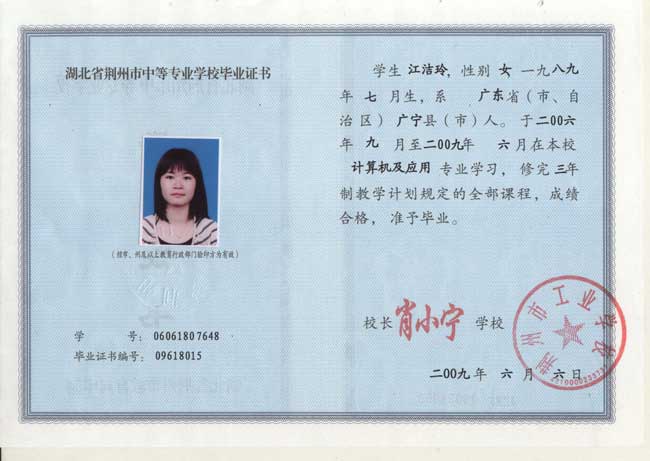 湖北省荆州市中等专业学校毕业证书
(经市、州及以上教育行政部门验印方为有效)
学 号: 06061807648
毕业证书编号: 09618015
学生 江洁玲, 性别 女 一九八九
年 七 月生, 系 广东省 (市、自
治区) 广宁县 (市) 人。于二00六
年 九 月至二00九年 六月在本校
计算机及应用 专业学习, 修完 三年
制教学计划规定的全部课程, 成绩
合格, 准予毕业。
校长 肖小宁 学校
荆州市工业学校
二00九 年 六 月 六 日